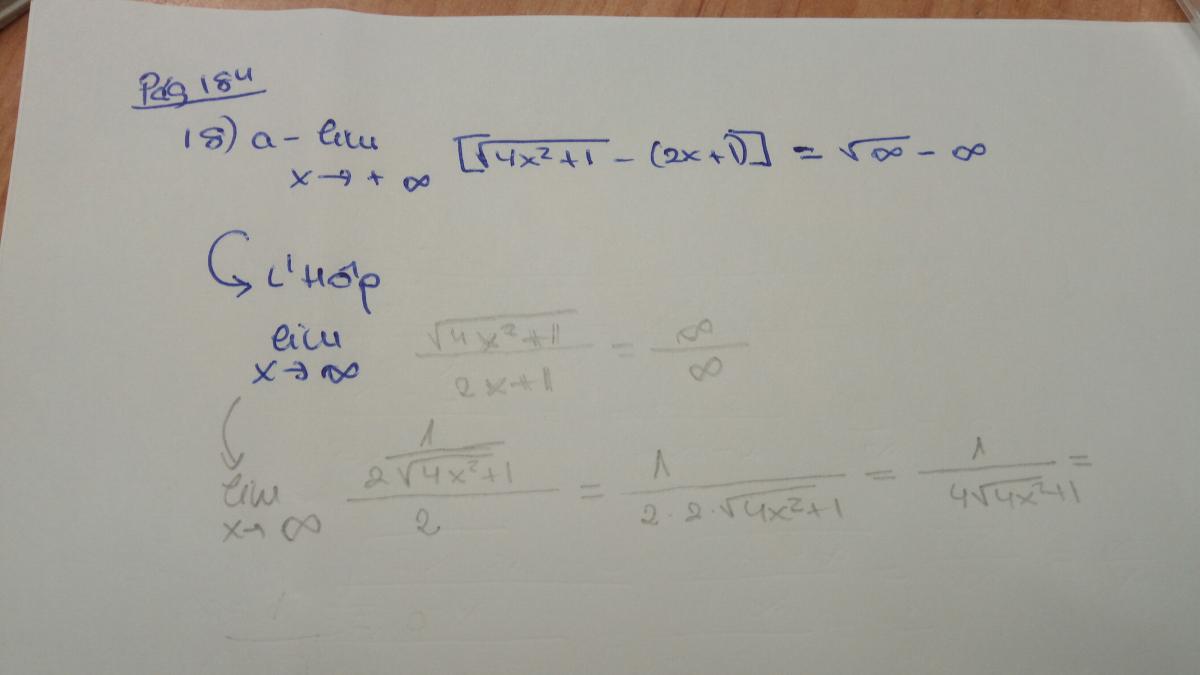 Pág 184
18) a - lim x→+∞ [√(4x²+1) - (2x+1)] = √∞ - ∞
L'Hôp
lim x→∞ √(4x²+1) / (2x+1) = ∞/∞
lim x→∞ (1 / (2√(4x²+1))) / 2 = 1 / (2·2·√(4x²+1)) = 1 / (4√(4x²+1)) =